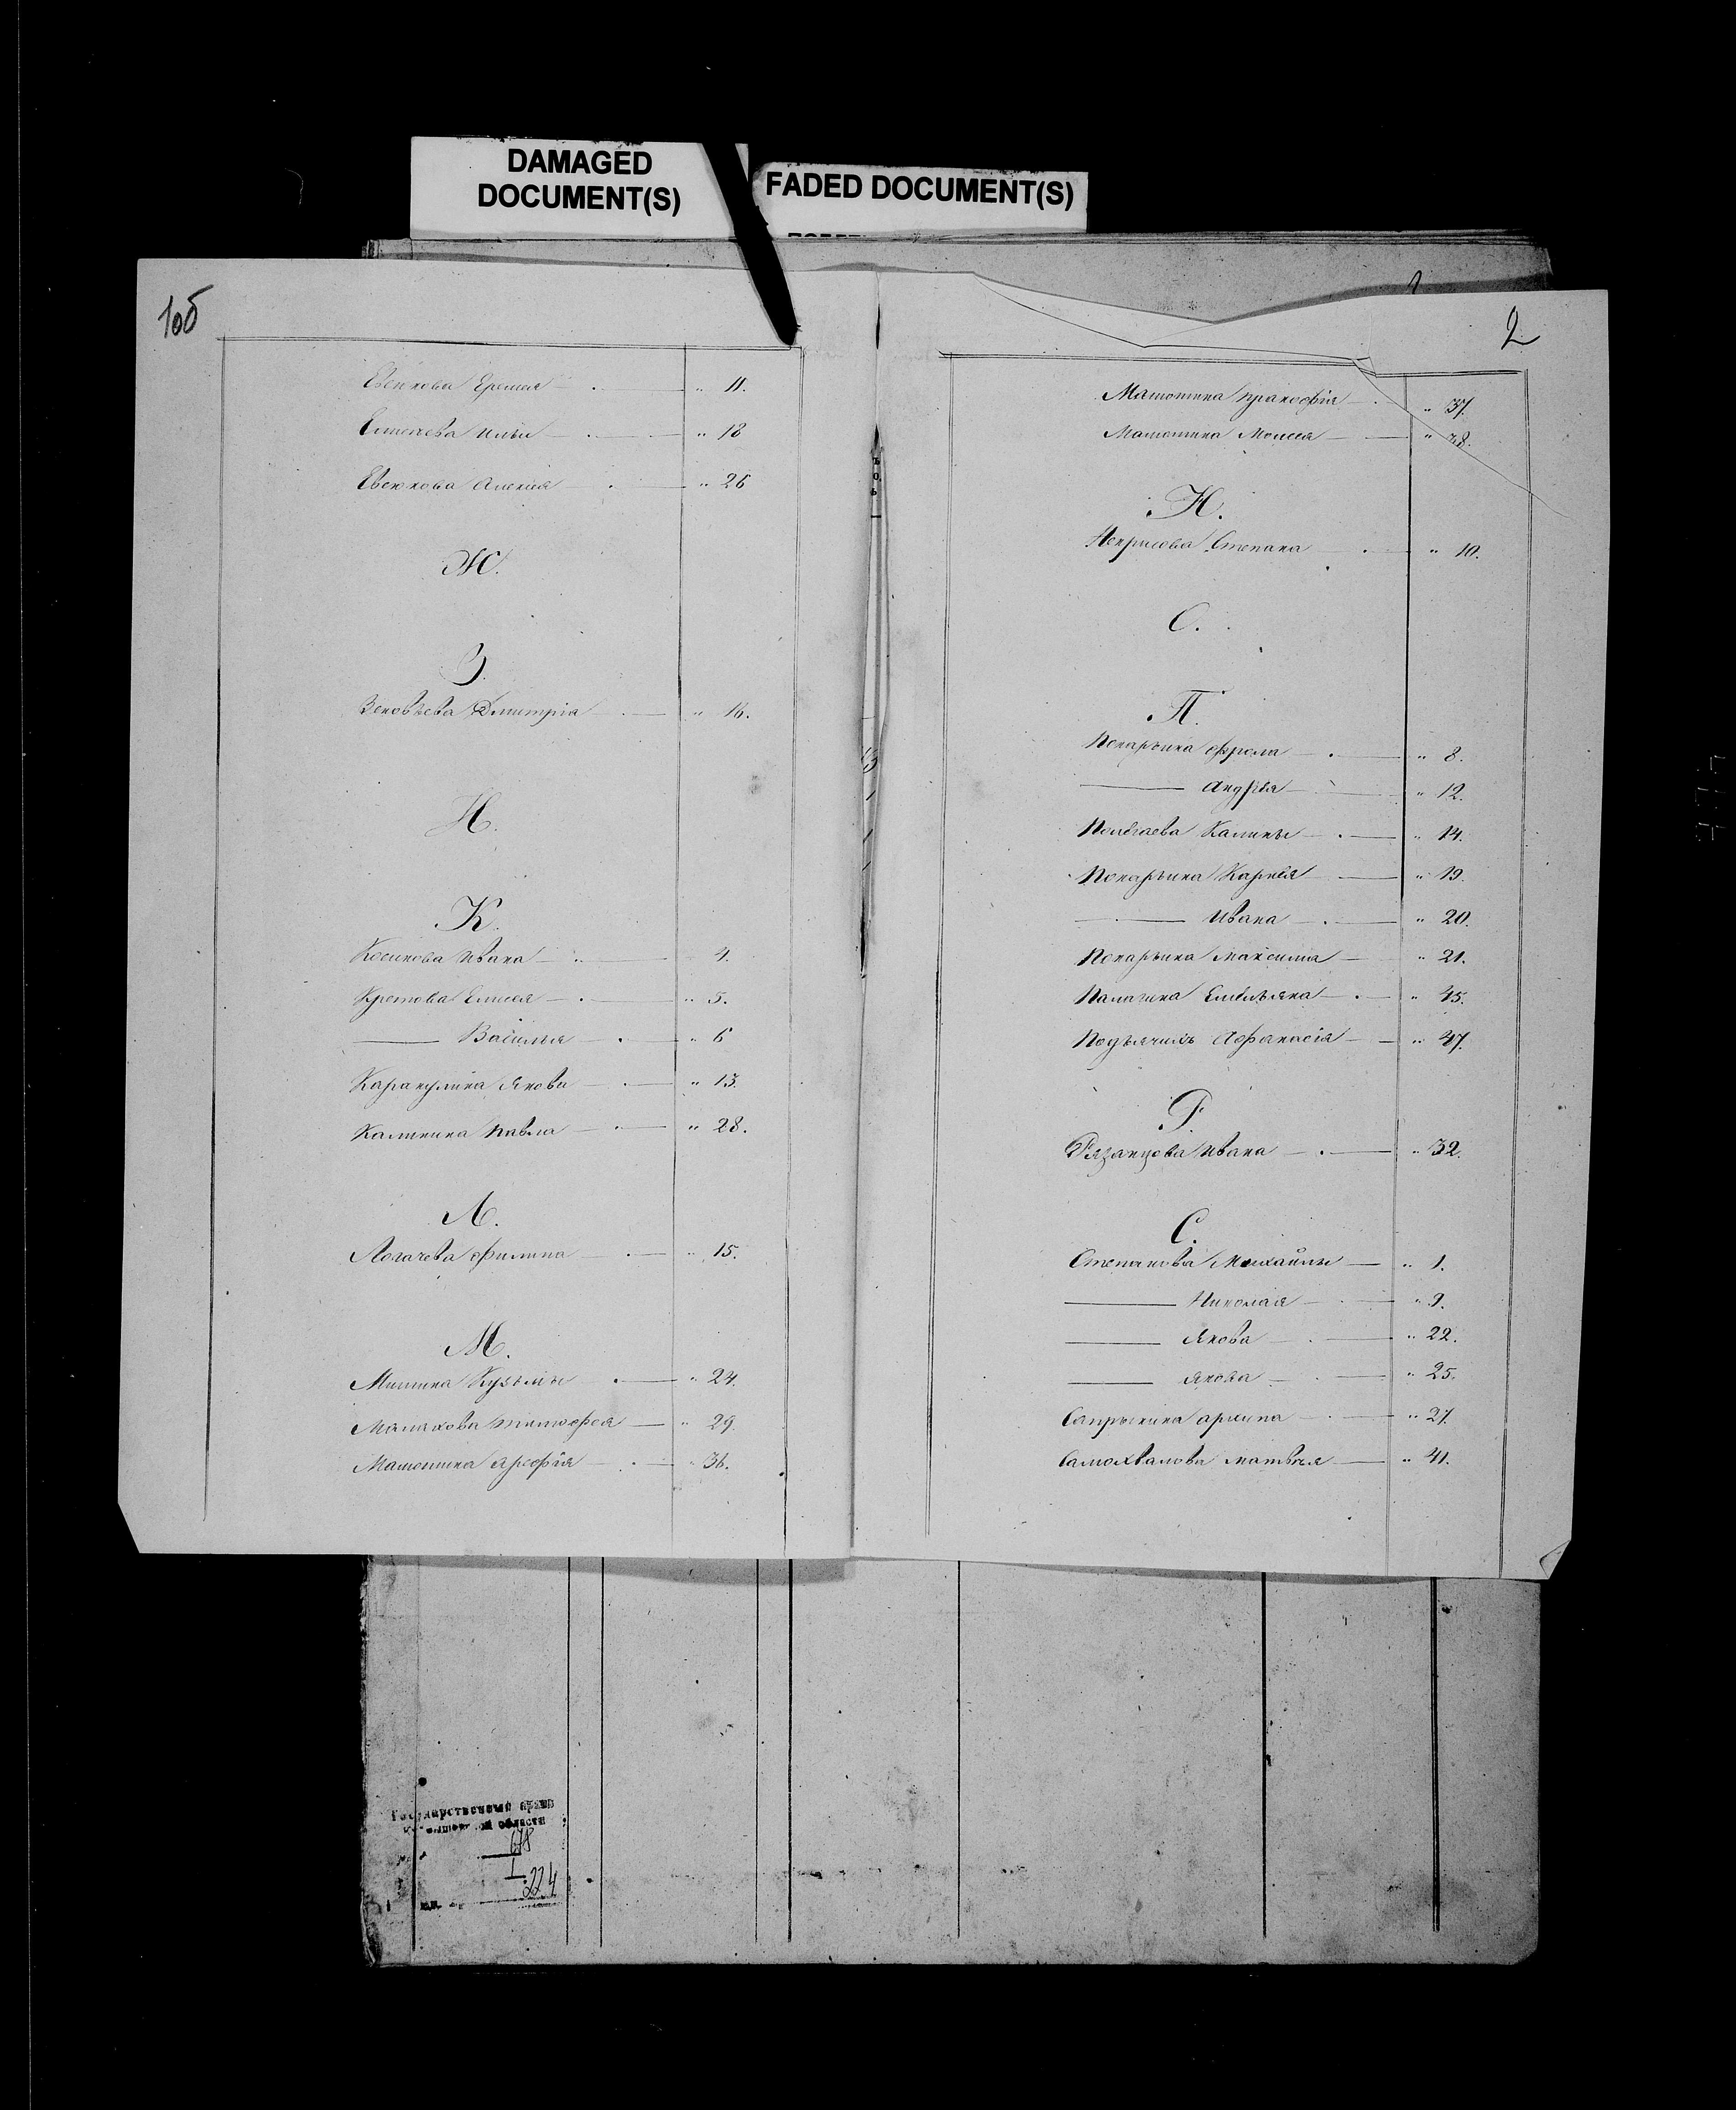 DAMAGED
DOCUMENT(S)
FADED DOCUMENT(S)
1об
Евсюкова Еремея — " 11.
Елисеева Ильи — " 18
Евсюкова Алексея — " 26
Ж.
З.
Зеновьева Дмитрія — " 16.
И.
К.
Косинова Ивана — " 4.
Кретова Елисея — " 5.
—— Василья — " 6
Каракулина Якова — " 13.
Калинина Павла — " 28.
Л.
Логачева Филипа — " 15.
М.
Мишина Кузьмы — " 24.
Малахова Тимофея — " 29.
Матюшина Арефія — " 36.
2
Матюшина Пракофія — " 37.
Матюшина Моисея — " 38.
Н.
Некрасова Степана — " 10.
О.
П.
Покарьина Фрола — " 8.
—— Андрѣя — " 12.
Калины — " 14.
Покарьина Карнѣя — " 19.
—— Ивана — " 20.
Покарьина Максима — " 21.
Палагина Емельяна — " 45.
Подъячихъ Афанасія — " 47.
Р.
Рязанцова Ивана — " 32.
С.
Степанова Михайлы — " 1.
—— Николая — " 9.
—— Якова — " 22.
—— Якова — " 25.
Сапрыкина Архипа — " 27.
Самохвалова Матвѣя — " 41.
Государственный архив
области
I
224